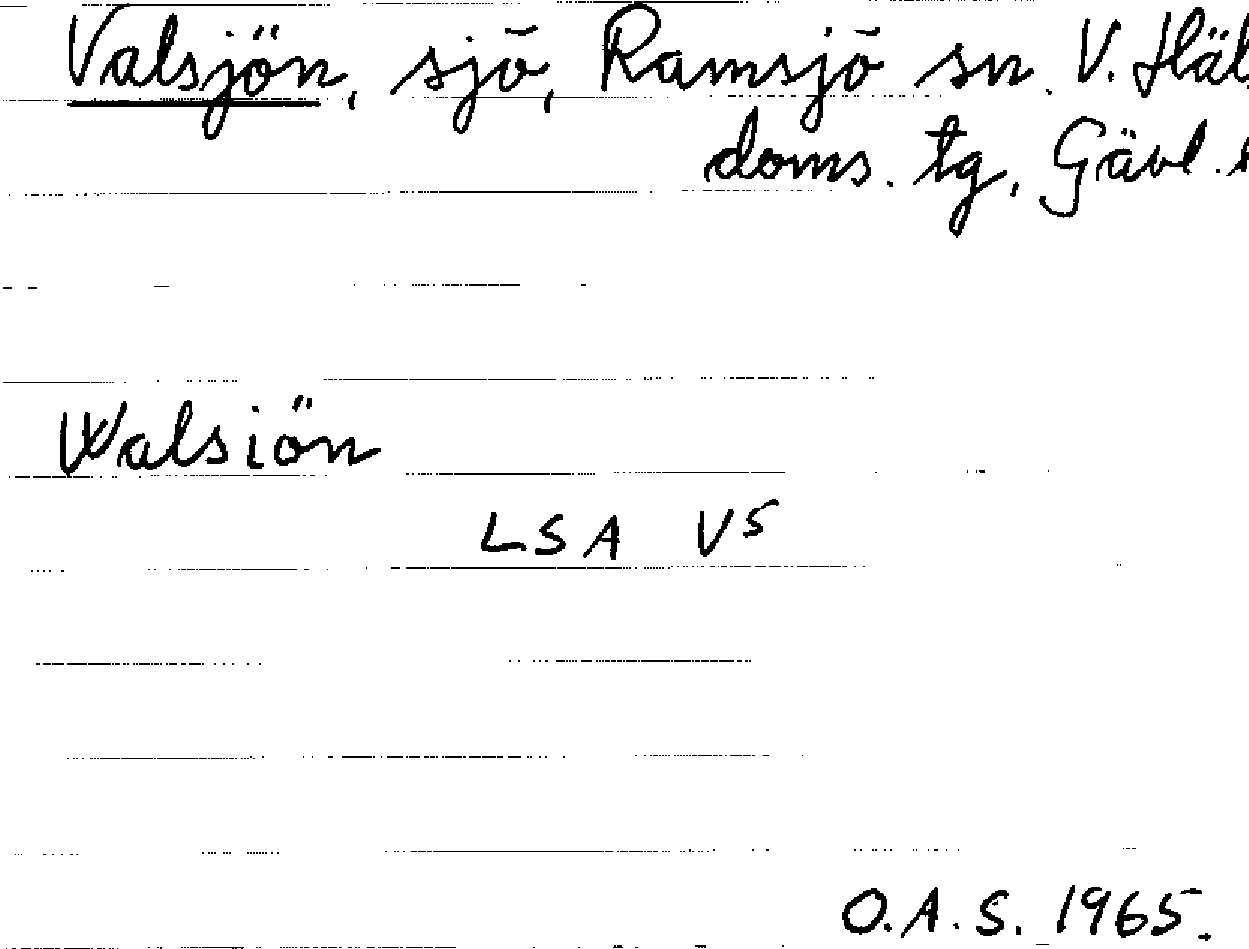 Valsjön, sjö, Ramsjö sn. V. Häl
doms. tg, Gävl.
Walsiön
LSA V5
O.A.S. 1965.